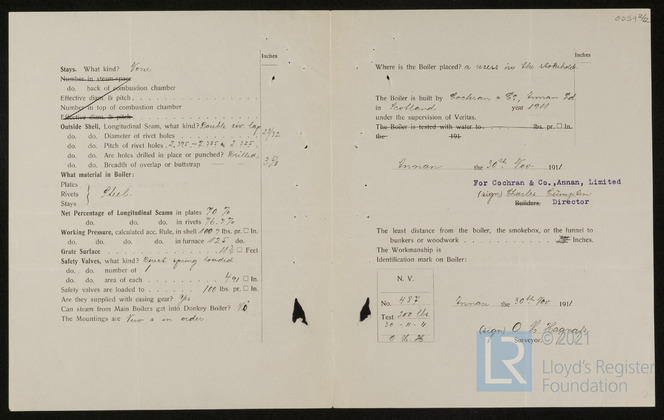 Inches
Stays. What kind? None
Number in steam space
do. back of combustion chamber
Effective diam. & pitch
Number in top of combustion chamber
Effective diam. & pitch
Outside Shell, Longitudinal Seam, what kind? Double riv lap
do. do. Diameter of rivet holes
do. do. Pitch of rivet holes 2.725
do. do. Are holes drilled in place or punched? Drilled
do. do. Breadth of overlap or buttstrap
What material in Boiler:
Plates
Rivets } Steel
Stays
Net Percentage of Longitudinal Seams in plates 70 %
do. do. do. do. in rivets 76.7%
Working Pressure, calculated acc. Rule, in shell 100 lbs. pr. □ In.
do. do. do. do. in furnace 125 do.
Grate Surface □ Feet
Safety Valves, what kind? Direct spring loaded
do. do. number of
do. do. area of each 4.91 □ In.
Safety valves are loaded to 100 lbs. pr. □ In.
Are they supplied with easing gear? Yes
Can steam from Main Boilers get into Donkey Boiler? No
The Mountings are New & in order
Inches
Where is the Boiler placed? a recess in the stokehold
The Boiler is built by Cochran & Co, Annan Ld
in Scotland year 1911
under the supervision of Veritas.
The Boiler is tested with water to lbs. pr. □ In.
the 191
Annan the 30th Nov 1911
For Cochran & Co., Annan, Limited
(sign) Charles Crumpton
Builders. Director
The least distance from the boiler, the smokebox, or the funnel to
bunkers or woodwork Inches.
The Workmanship is
Identification mark on Boiler:
N. V.
No. 487
Test 200 lbs
30 - 11 - 11
O H H
Annan the 30th Nov 1911
(sign) O H
Surveyor.
© 2021
LR
Lloyd's Register
Foundation